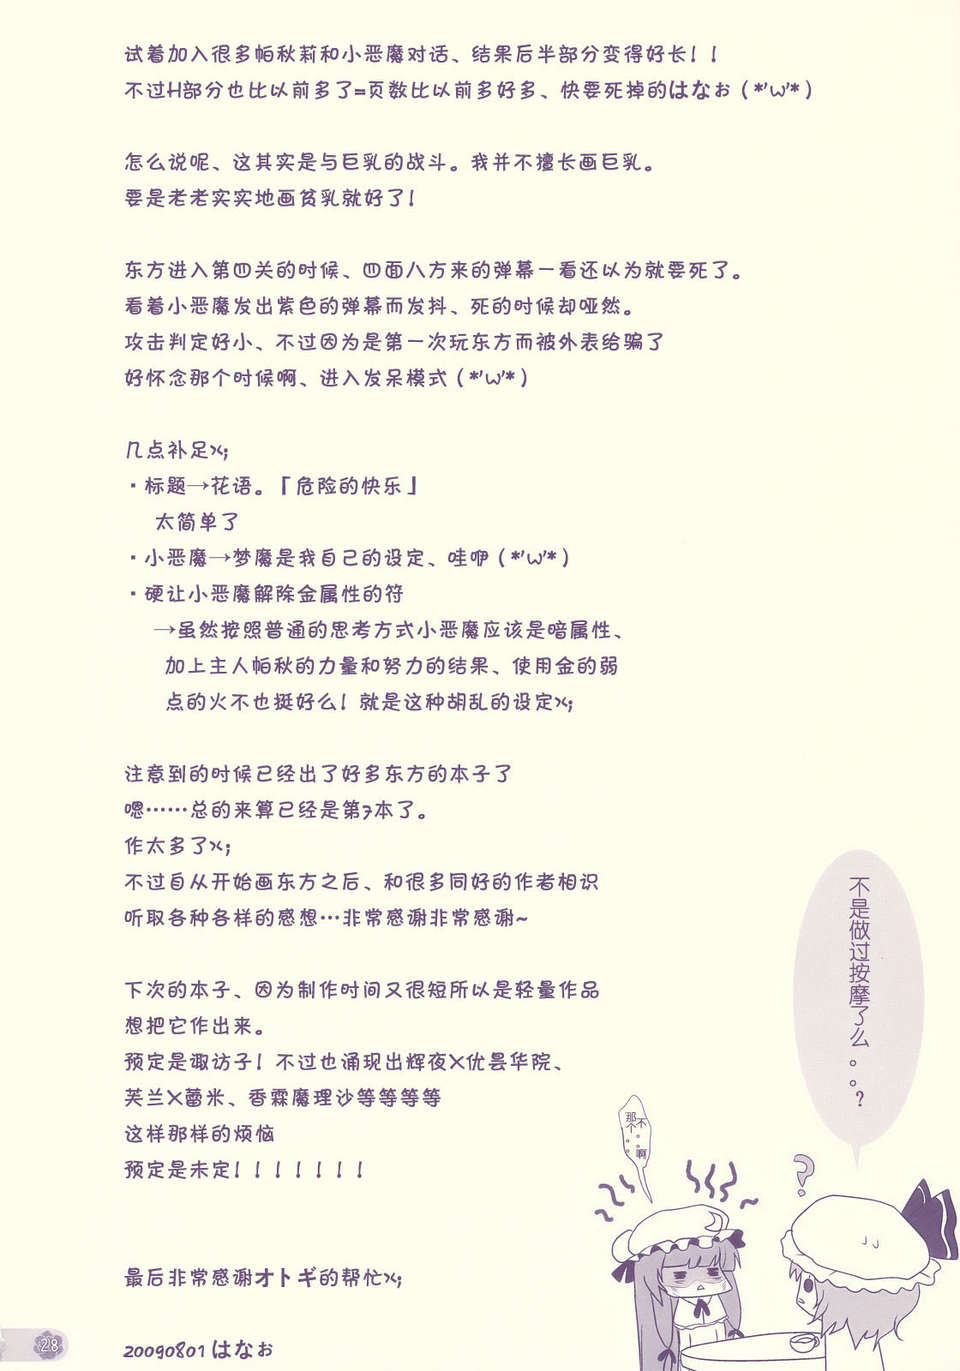 试着加入很多帕秋莉和小恶魔对话、结果后半部分变得好长！！
不过H部分也比以前多了=页数比以前多好多、快要死掉的はなぉ（*'ω'*）
怎么说呢、这其实是与巨乳的战斗。我并不擅长画巨乳。
要是老老实实地画贫乳就好了！
东方进入第四关的时候、四面八方来的弹幕一看还以为就要死了。
看着小恶魔发出紫色的弹幕而发抖、死的时候却哑然。
攻击判定好小、不过因为是第一次玩东方而被外表给骗了
好怀念那个时候啊、进入发呆模式（*'ω'*）
几点补足×;
・标题→花语。「危险的快乐」
太简单了
・小恶魔→梦魔是我自己的设定、哇咿（*'ω'*）
・硬让小恶魔解除金属性的符
→虽然按照普通的思考方式小恶魔应该是暗属性、
加上主人帕秋的力量和努力的结果、使用金的弱
点的火不也挺好么！就是这种胡乱的设定×;
注意到的时候已经出了好多东方的本子了
嗯……总的来算已经是第7本了。
作太多了×;
不过自从开始画东方之后、和很多同好的作者相识
听取各种各样的感想…非常感谢非常感谢~
下次的本子、因为制作时间又很短所以是轻量作品
想把它作出来。
预定是诹访子！不过也涌现出辉夜×优昙华院、
芙兰×蕾米、香霖魔理沙等等等等
这样那样的烦恼
预定是未定！！！！！！！
最后非常感谢オトギ的帮忙×;
20090801 はなぉ
不是做过按摩了么。。。?
不。。啊
那个。。
?
28